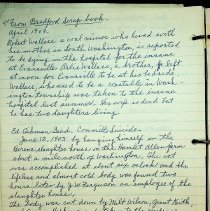 "From Bradford Scrap book.
April 1909.
Robert Wallace, a coal miner, who lived with
his mother in South Washington, is reported
to be dying in the hospital for the insane
at Evansville. Peter Wallace, a brother, left
at noon for Evansville to be at his bedside.
Wallace, who used to be a constable in Wash-
ington township was taken to the insane
hospital last summer. His wife is dead but
he has two daughters living.
Ed Oshman, Dead. Commits Suicide.
June 13, 1903 by hanging himself in the
slaughter house in the Hamlet
about a mile north of Washington. The act
was accomplished at about six oclock and the
lifeless and almost cold body was found two
hours later by Ferguson an employee of the
slaughter house.
The body was cut down by Matt Wilson, Grant Keith,